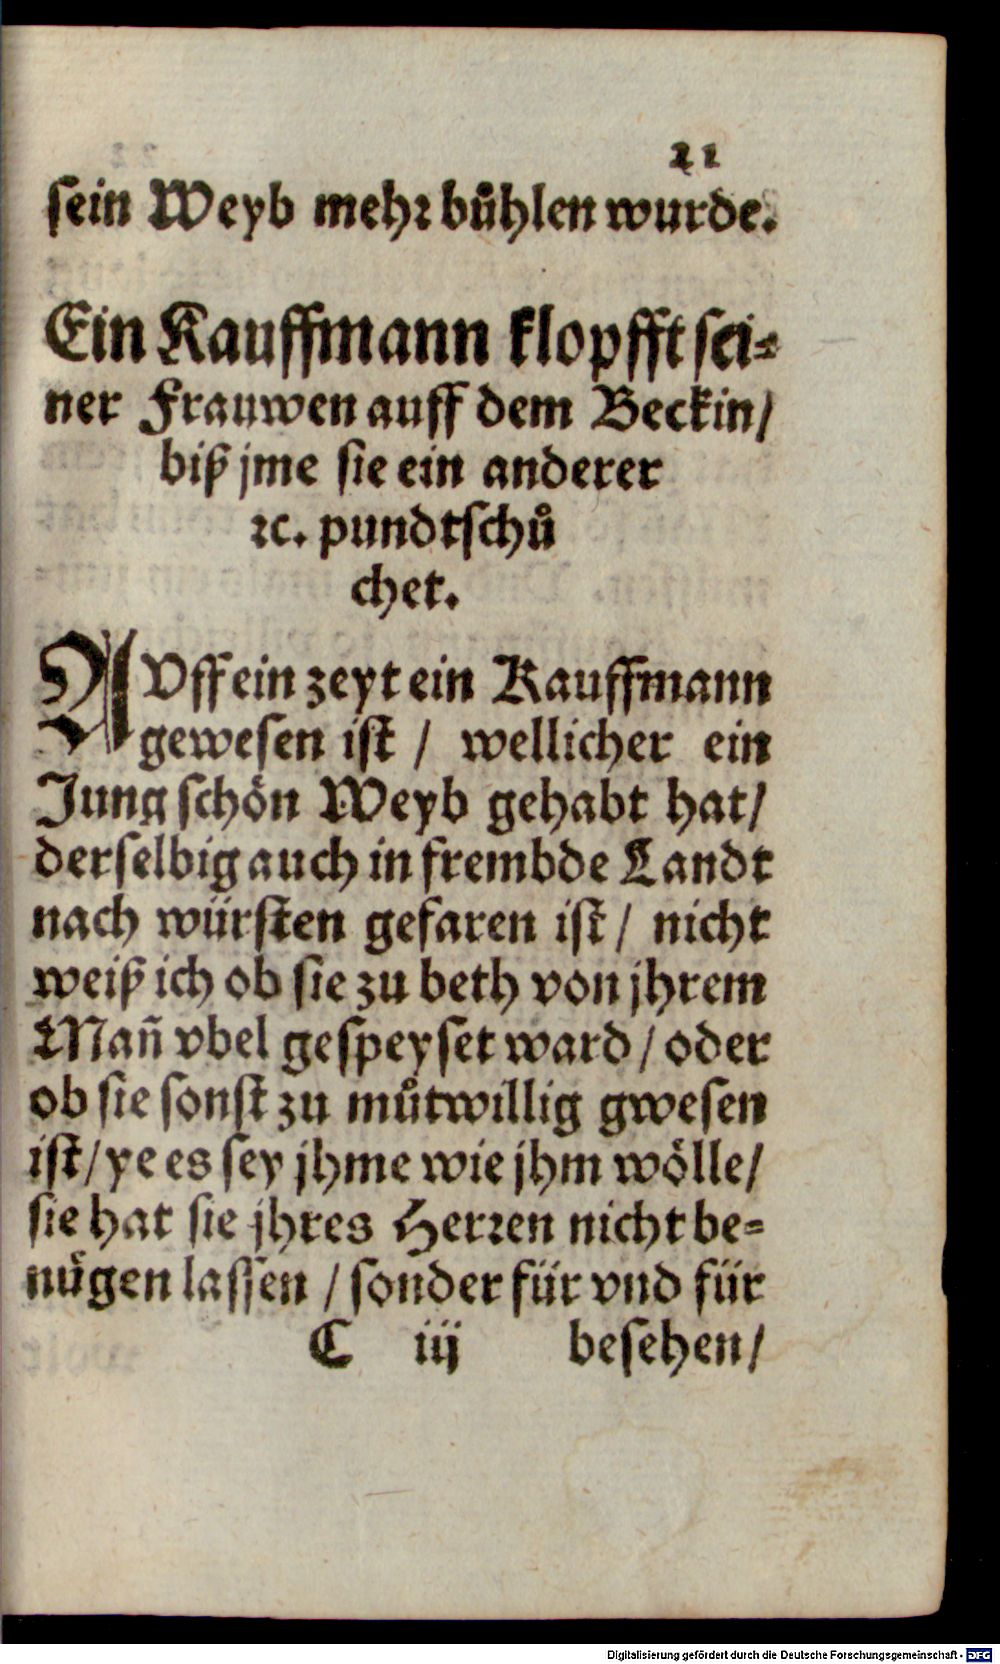 21
sein Weyb mehr bůhlen wurde.
Ein Kauffmann klopfft sei-
ner Frauwen auff dem Beckin/
biß jme sie ein anderer
ꝛc. pundtschů
chet.
AUff ein zeyt ein Kauffmann
gewesen ist / wellicher ein
Jung schön Weyb gehabt hat/
derselbig auch in frembde Landt
nach würsten gefaren ist / nicht
weiß ich ob sie zu beth von jhrem
Mañ vbel gespeyset ward / oder
ob sie sonst zu můtwillig gwesen
ist / ye es sey jhme wie jhm wölle/
sie hat sie jhres Herren nicht be-
nügen lassen / sonder für vnd für
C iij besehen/
Digitalisierung gefördert durch die Deutsche Forschungsgemeinschaft - DFG